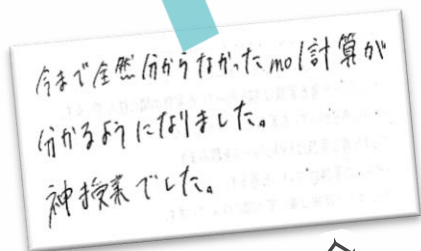 今まで全然分からなかったmol計算が
分かるようになりました。
神授業でした。